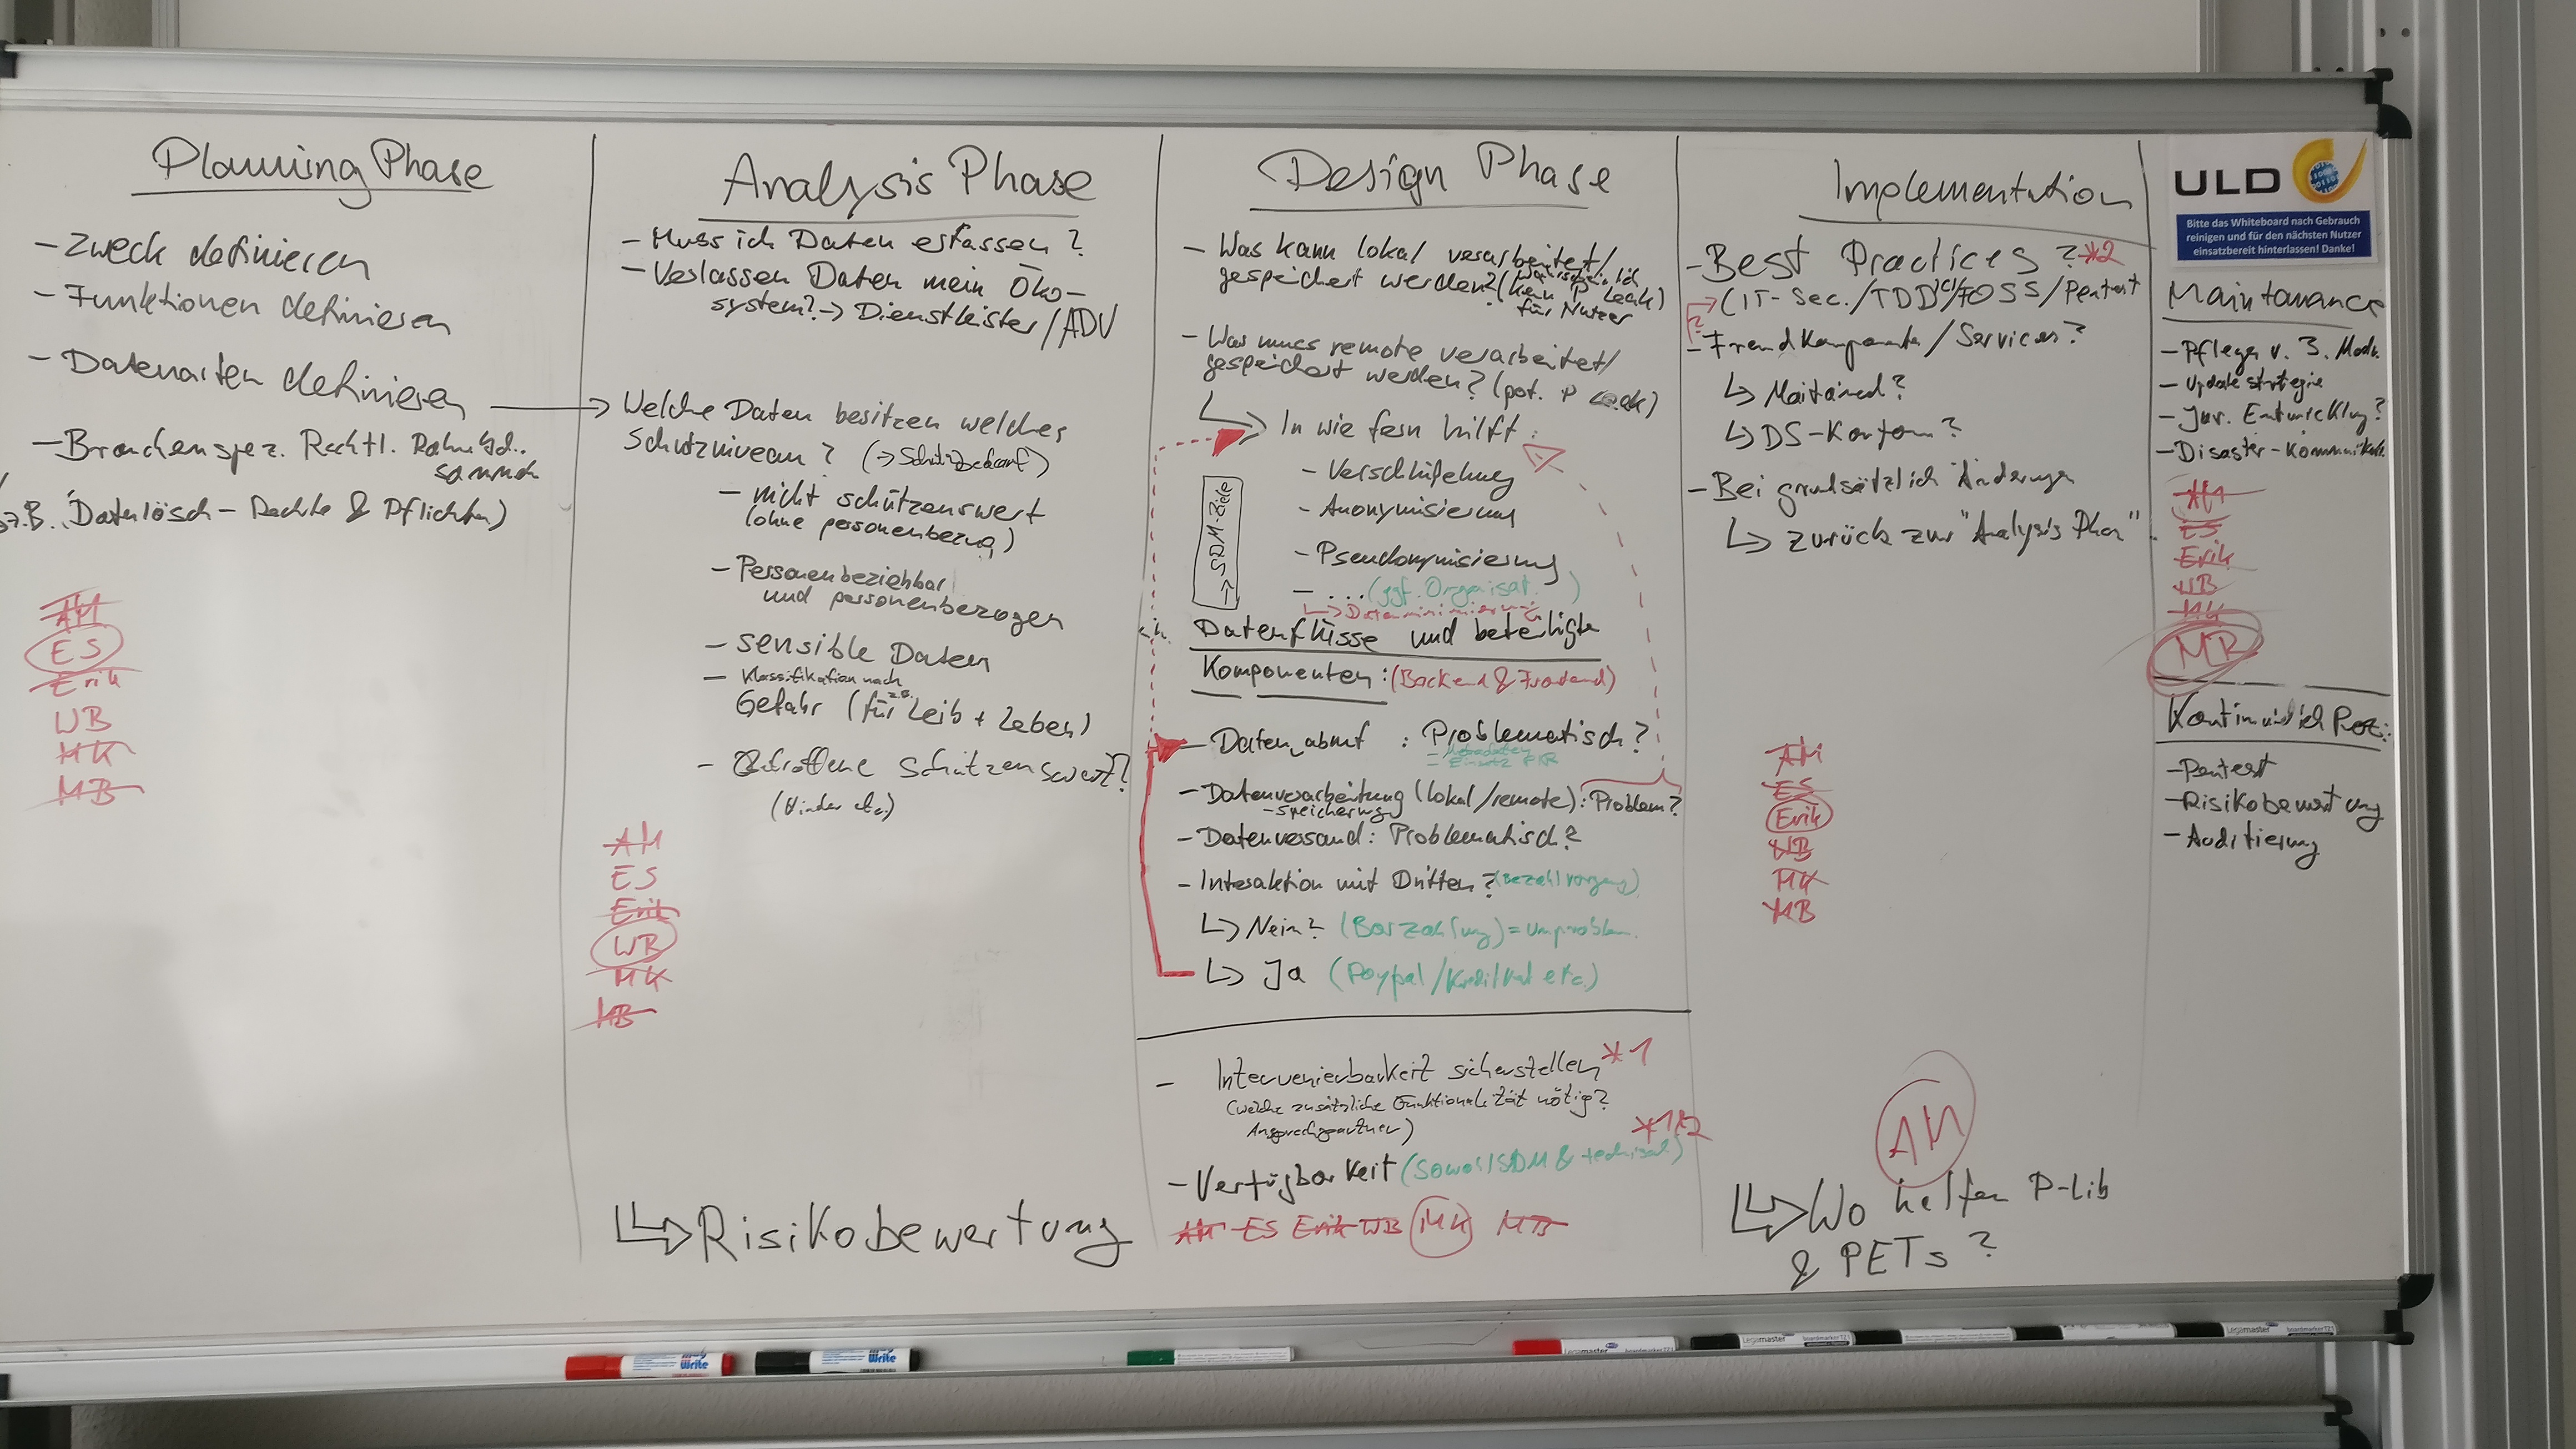 Planning Phase
- Zweck definieren
- Funktionen definieren
- Datenarten definieren
- Branchenspez. Rechtl.
(z.B. Datenlösch- Rechte & Pflichten)
AM
ES
Erik
WB
MK
MB
Analysis Phase
- Muss ich Daten erfassen?
- Verlassen Daten mein Öko-
system? → Dienstleister/ADV
Welche Daten besitzen welches
Schutzniveau? (→ Schutzbedarf)
- nicht schützenswert
(ohne personenbezug)
- Personenbeziehbar
und personenbezogen
- sensible Daten
- Klassifikation nach
Gefahr (für z.B. Leib + Leben)
- Betroffene Schützenswert?
(Kinder etc.)
AM
ES
Erik
WB
MK
MB
Risikobewertung
Design Phase
- Was kann lokal verarbeitet/
gespeichert werden? (wahrscheinlich
kein P Leak)
für Nutzer
- Was muss remote verarbeitet/
gespeichert werden? (pot. P Leak)
In wie fern hilft:
- Verschlüsselung
- Anonymisierung
- Pseudonymisierung
- ... (ggf. Organisat. )
→ Datenminimierung
→ SDM-Ziele
Datenflüsse und beteiligte
Komponenten: (Backend & Frontend)
- Daten : Problematisch?
- Datenverarbeitung (lokal/remote): Problem?
-speicherung
- Datenversand: Problematisch?
- Interaktion mit Dritten? (Bezahlvorgang)
Nein? (Barzahlung) = unproblem.
Ja (Paypal/Kreditkart etc.)
- Intervenierbarkeit sicherstellen *1
(welche zusätzliche Funktionalität nötig?
Ansprechpartner)
*1*2
- Verfügbarkeit (Sowohl SDM & technisch)
AM ES Erik WB MK MB
Implementation
- Best Practices? *2
(IT-Sec./TDD/CI/FOSS/Pentest
?
- Fremdkomponenten/Services?
Maitained?
DS-Konform?
- Bei grundsätzlich Änderungen
zurück zur "Analysis Phase"
AM
ES
Erik
WB
MK
MB
AM
Wo helfen P-Lib
& PETs?
ULD
Bitte das Whiteboard nach Gebrauch
reinigen und für den nächsten Nutzer
einsatzbereit hinterlassen! Danke!
Maintanance
- Pflege v. 3. Modu.
- Updatestrategie
- Jur. Entwicklung?
- Disaster-Kommunikat.
AM
ES
Erik
WB
MK
MB
Kontinuierlich Proz.:
- Pentest
- Risikobewertung
- Auditierung
my Write
my Write
Legamaster boardmarker TZ1
Legamaster boardmarker TZ1
Legamaster boardmarker TZ1